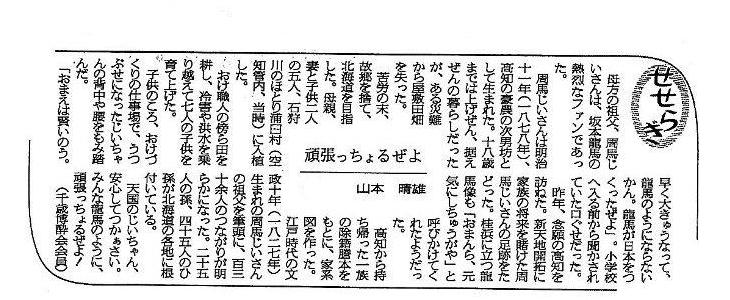 せせらぎ
頑張っちょるぜよ
山本 晴雄
母方の祖父、周馬じ
いさんは、坂本龍馬の
熱烈なファンであっ
た。
周馬じいさんは明治
十一年(一八七八)、
高知の豪農の次男坊と
して生まれた。十八歳
までは上げぜん、据え
ぜんの暮らしだった
が、ある災難
から屋敷田畑
を失った。
苦労の末、
故郷を捨て、
北海道を目指
した。母親、
妻と子供二人
の五人、石狩
川のほとり浦臼村(空
知管内、当時)に入植
した。
おけ職人の傍ら田を
耕し、冷害や洪水を乗
り越えて七人の子供を
育て上げた。
子供のころ、おけづ
くりの仕事場で、うつ
ぶせになったじいちゃ
んの背中や腰をもみ踏
んだ。
「おまえは賢いのう。
早く大きゅうなって、
龍馬のようにならない
かん。龍馬が日本をつ
くったぜよ」。小学校
へ入る前から聞かされ
ていた口ぐせだった。
昨年、念願の高知を
訪ねた。新天地開拓に
家族の将来を賭けた周
馬じいさんの足跡をた
どった。桂浜に立つ龍
馬像も「おまんら、元
気にしちゅうがや」と
呼びかけてく
れたようだっ
た。
高知から持
ち帰った一族
の除籍謄本を
もとに、家系
図を作った。
江戸時代の文
政十年(一八二七年)
生まれの周馬じいさん
の祖父を筆頭に、百三
十余人のつながりが明
らかになった。二十五
人の孫、四十五人のひ
孫が北海道の各地に根
付いている。
天国のじいちゃん、
安心してつかぁさい。
みんな龍馬のように、
頑張っちょるぜよ!
(千歳博酔会会員)